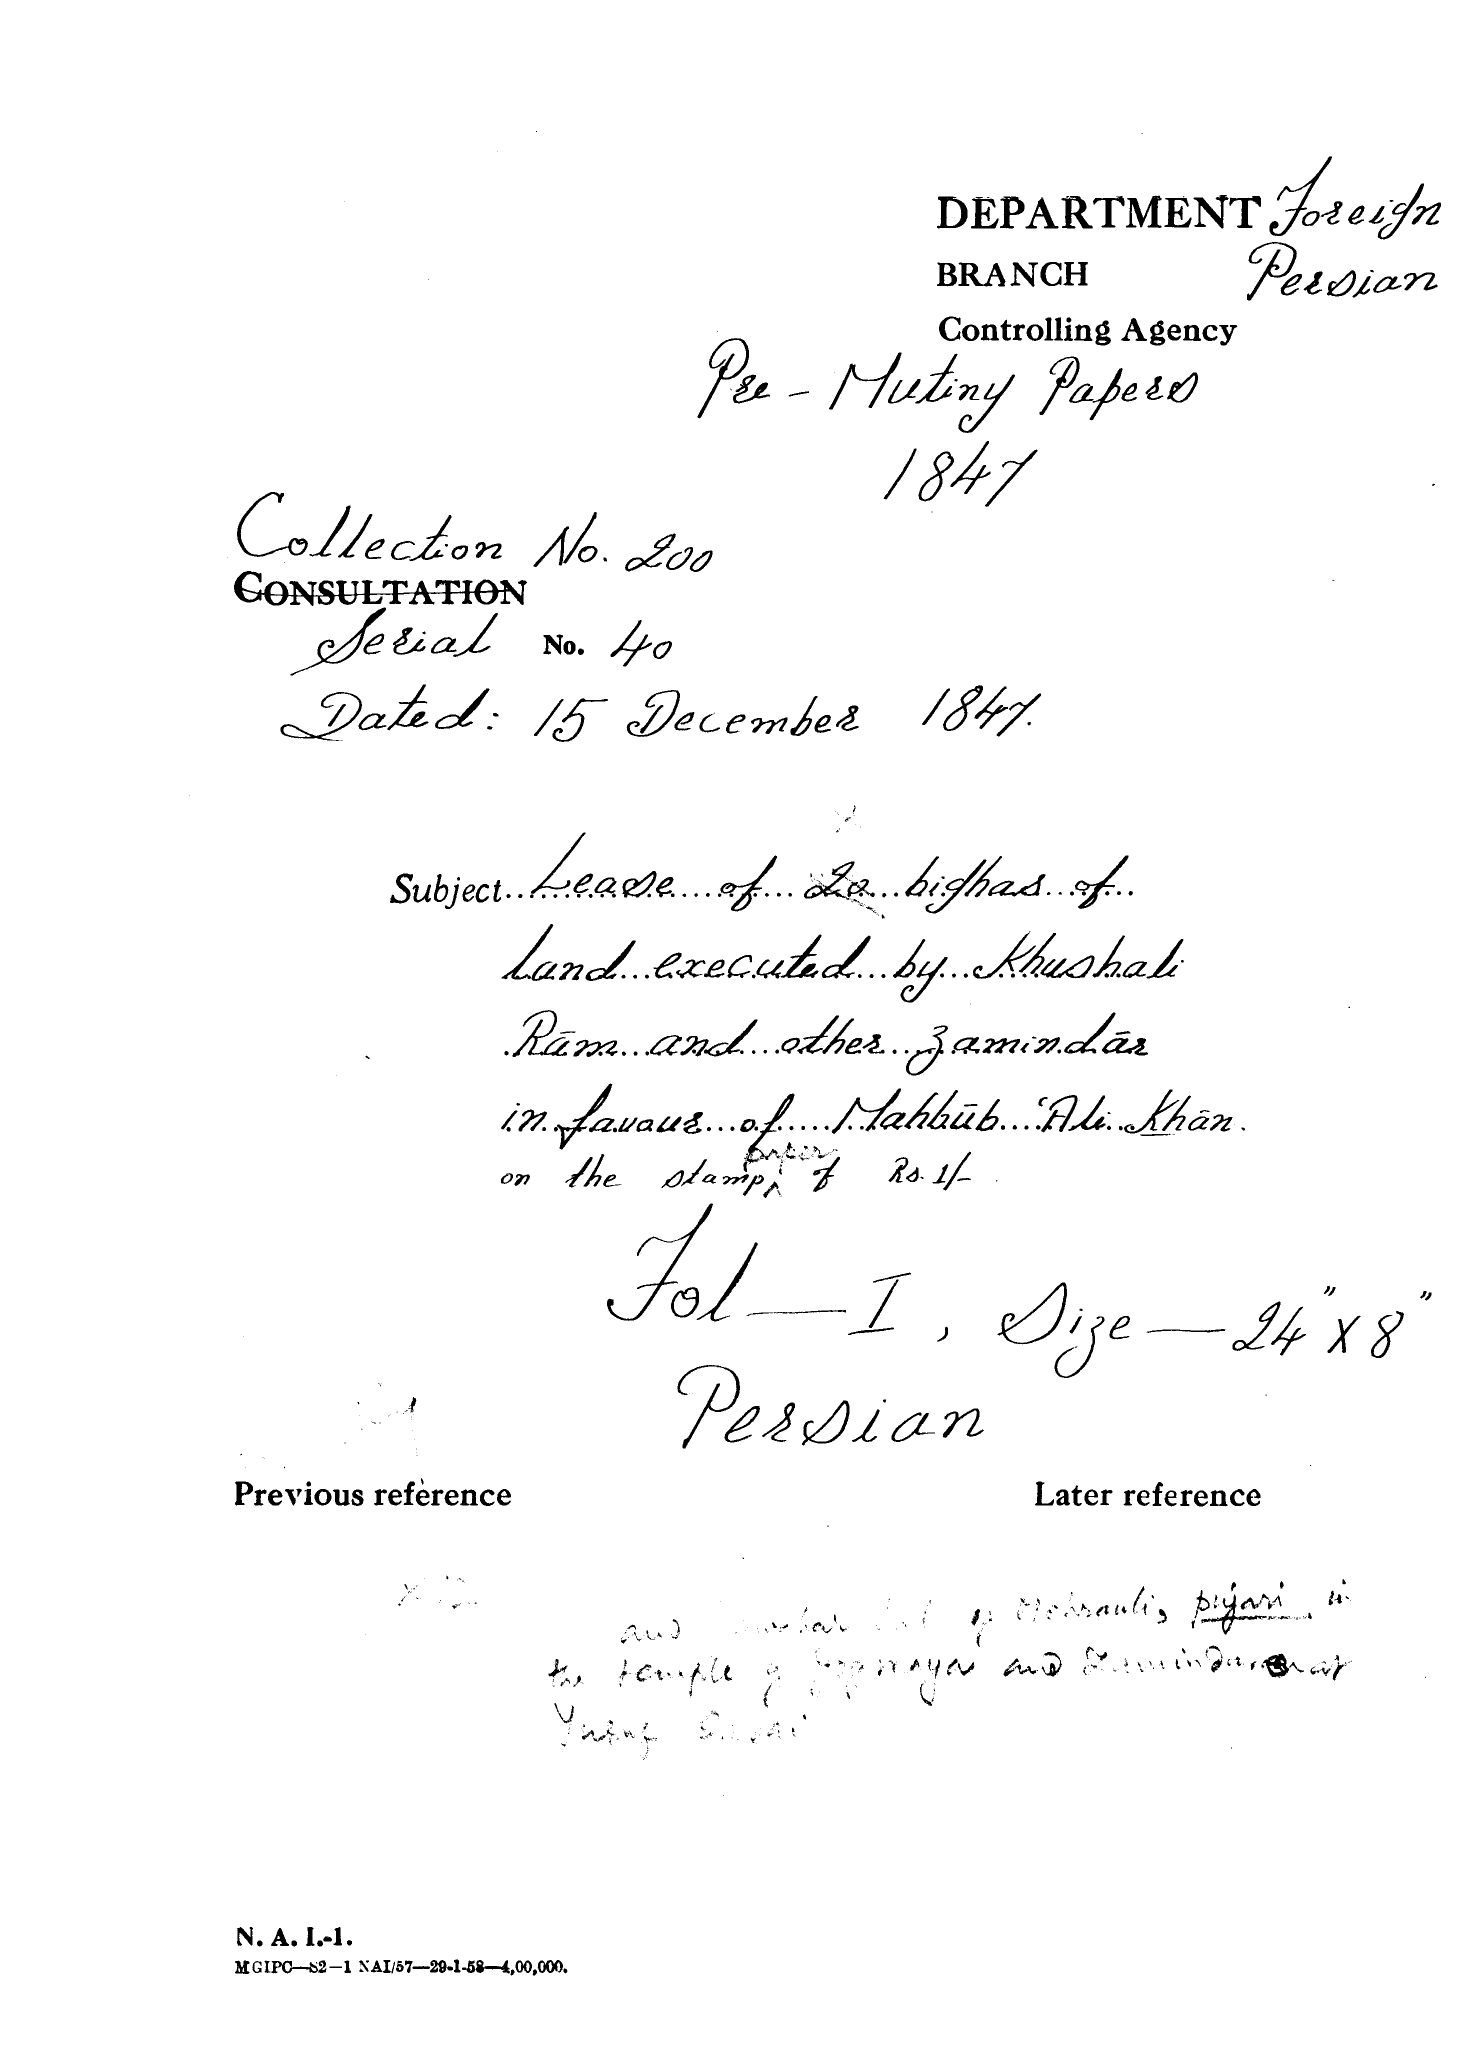 DEPARTMENT Foreign
BRANCH Persian
Controlling Agency
Pre - Mutiny Papers
1847
Collection No. 200
CONSULTATION
Serial No. 40
Dated: 15 December 1847.
Subject Lease of 20 bighas of
land executed by Khushali
Rām and other zamindār
in favour of Mahbūb 'Ali Khān.
paper
on the stamp ^ of Rs. 1/-
Fol — I, Size — 24" X 8"
Persian
Previous reference Later reference
and of Mehrauli, pujari in
the temple of Jogmaya and Zamindar at
Yusuf Sarai
N. A. I.-1.
MGIPC—S2—1 NAI/57—29-1-58—4,00,000.